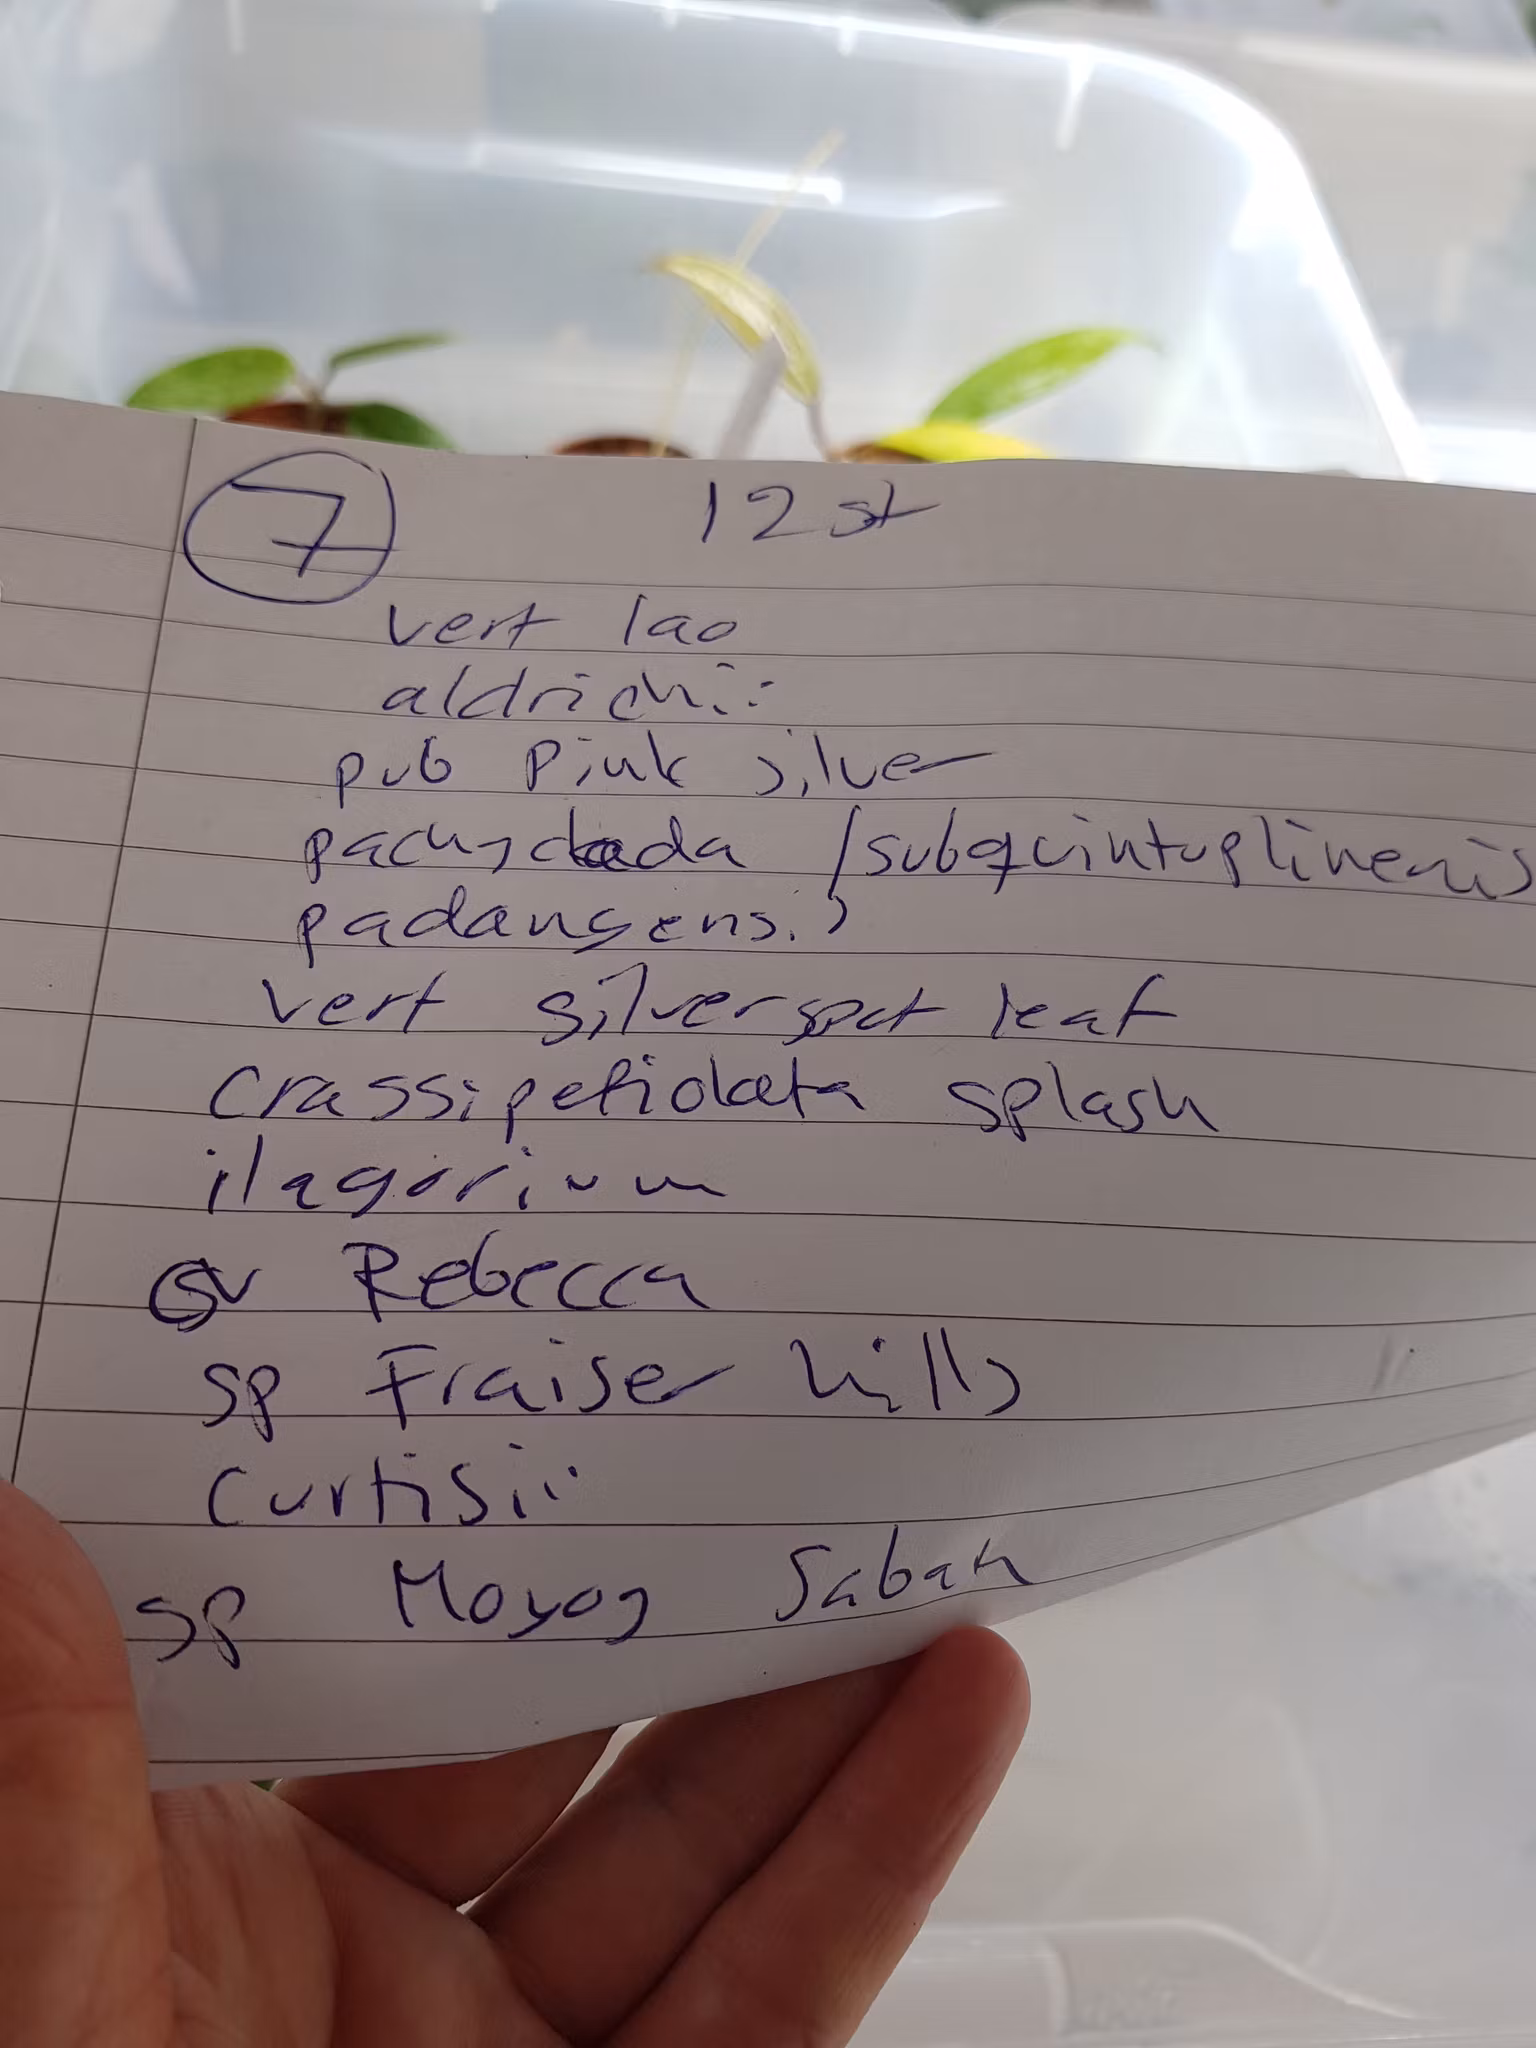 7 12 st
vert lao
aldrichii
pub pink silver
pachyclada / subquintuplinervis
padangensis
vert silver spot leaf
crassipetiolata splash
ilagorium
cv Rebecca
sp Fraiser hills
curtisii
sp Moyog Sabah